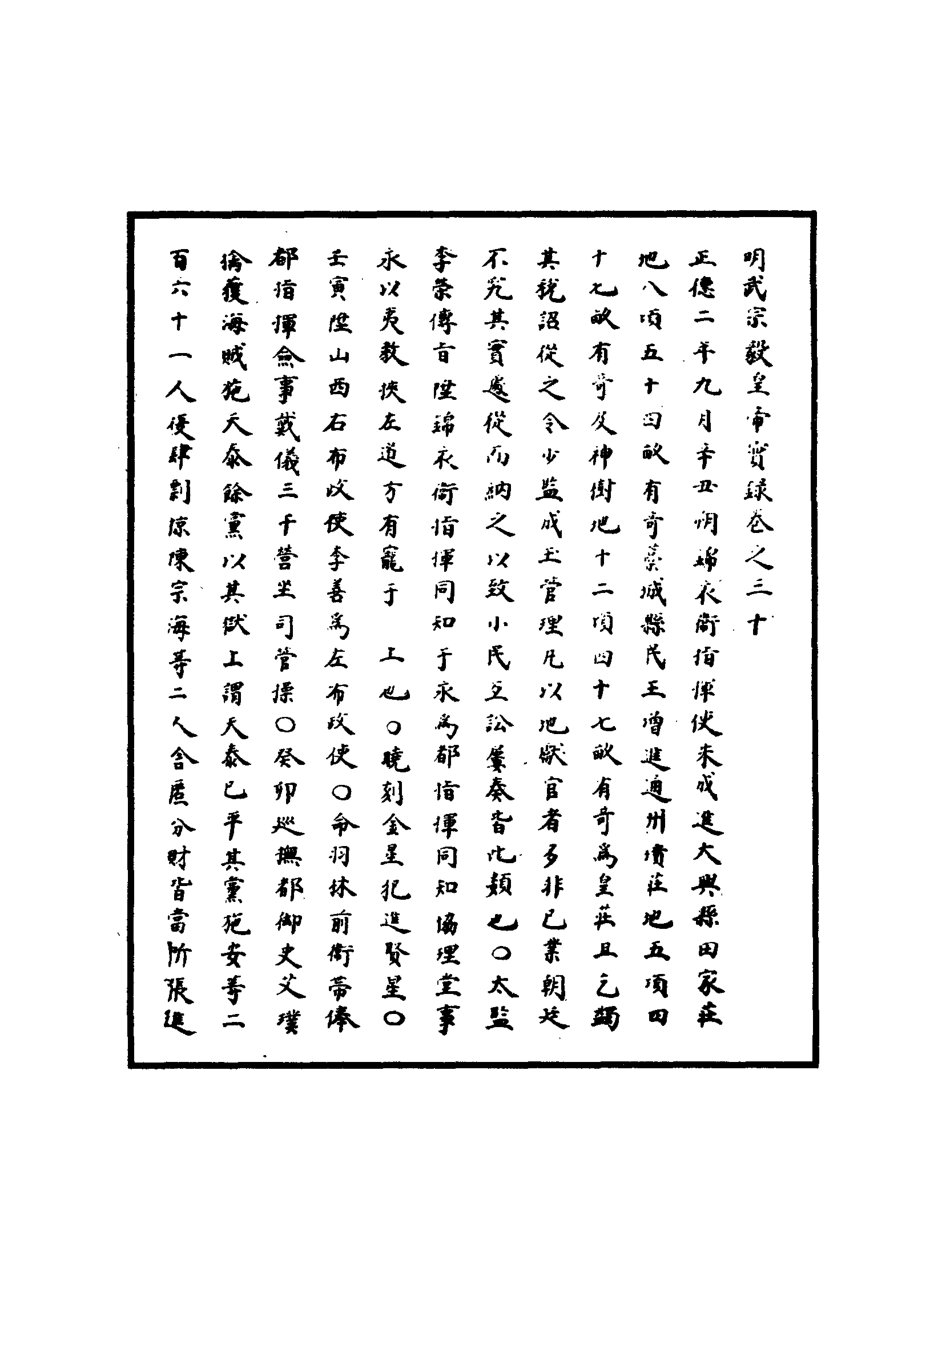 明武宗毅皇帝實錄卷之三十
正德二年九月辛丑朔錦衣衛指揮使朱成進大興縣田家莊
地八頃五十四畝有奇藁城縣民王增進通州墳莊地五頃四
十七畝有奇及神樹地十二頃四十七畝有奇為皇莊且乞蠲
其稅詔從之令少監成玉管理凡以地獻官者多非己業朝廷
不究其實遽從而納之以致小民互訟屢奏皆此類也○太監
李榮傳旨陞錦衣衛指揮同知于永為都指揮同知協理堂事
永以夷教挾左道方有寵于 上也○曉刻金星犯進賢星○
壬寅陞山西右布政使李善為左布政使○命羽林前衛帶俸
都指揮僉事戴儀三千營坐司管操○癸卯巡撫都御史艾璞
擒獲海賊施天泰餘黨以其獄上謂天泰已平其黨施安等二
百六十一人復肆剽掠陳宗海等二人含匿分財皆當斬張進